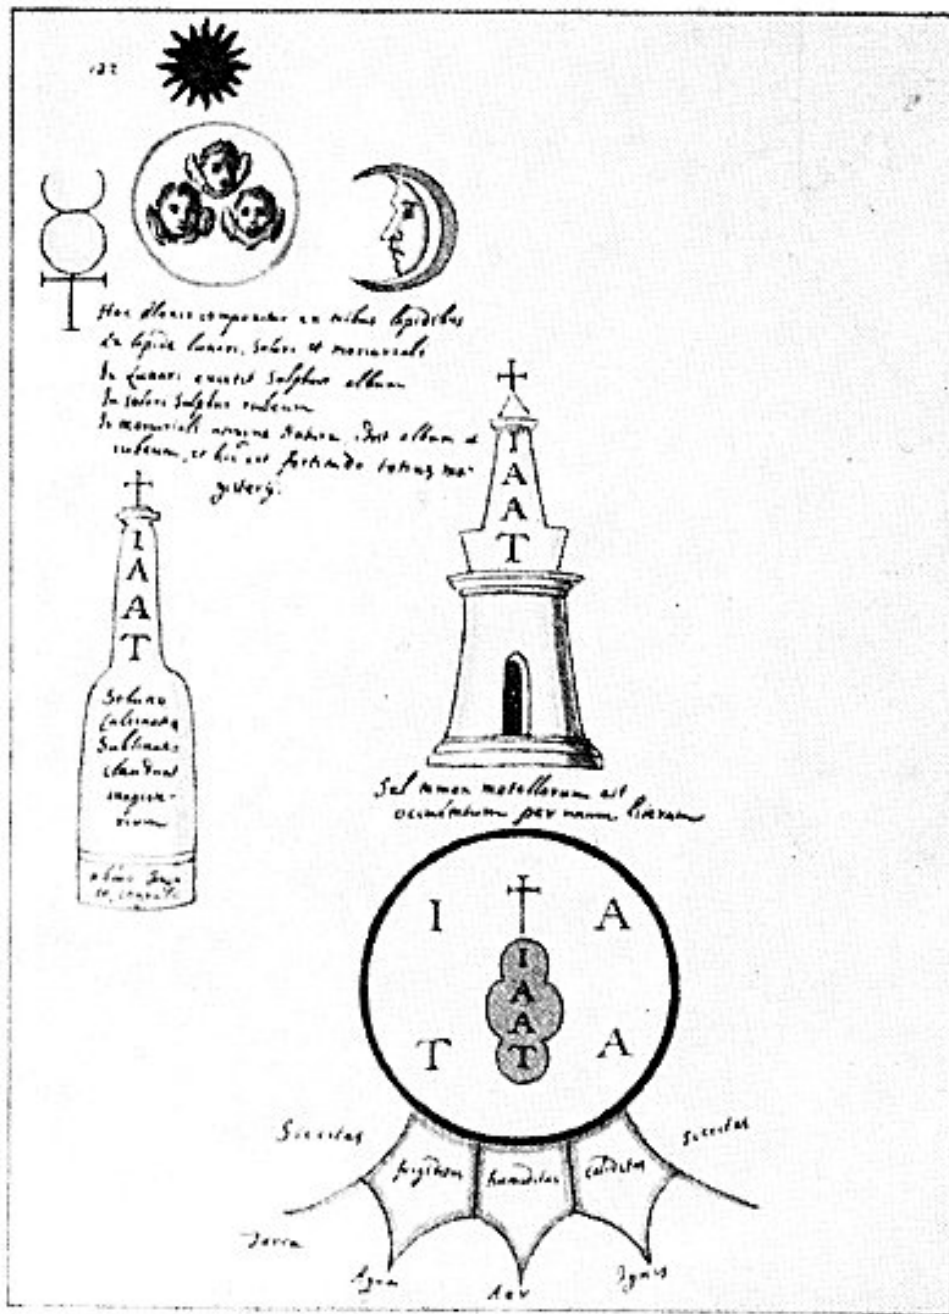 132
Hoc ex tribus lapidibus
Ex lapide lunari, Solari et mercuriali
In Lunari Sulphur album
In Solari Sulphur rubeum
In mercuriali Natura, album et
rubeum, et hic est fortitudo totius ma-
gisterij.
I
A
A
T
I
A
A
T
Solutio
Calcinatio
Sublimatio
claudunt
magiste-
rium
Sal metallorum est
occultatum per unam literam
I
A
I
A
A
T
T
A
Siccitas
Siccitas
frigiditas
humiditas
caliditas
Terra
Aqua
Aer
Ignis